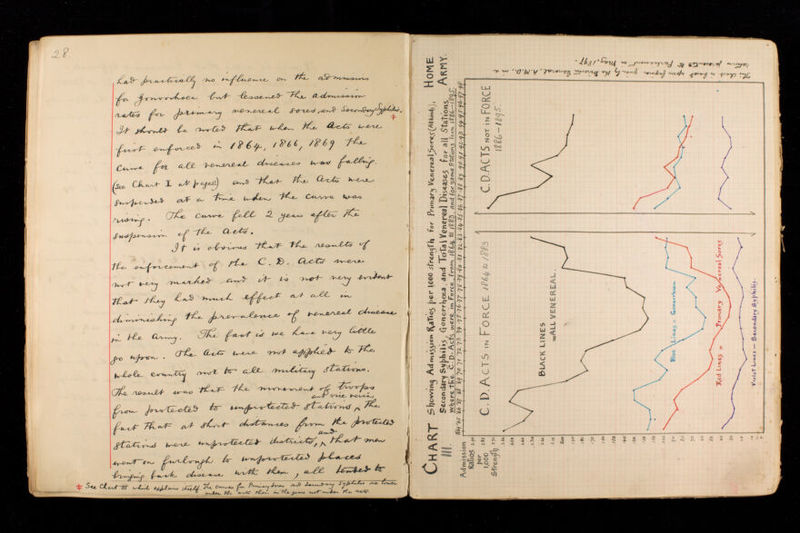 28
had practically no influence on the admissions
for Gonorrhoea but lessened the admission
rates for primary venereal sores, and Secondary Syphilis.
It should be noted that when the Acts were
first enforced in 1864, 1866, 1869 the
curve for all venereal diseases was falling.
(See Chart I at page) and that the Acts were
suspended at a time when the curve was
rising. The curve fell 2 years after the
suspension of the Acts.
It is obvious that the results of
the enforcement of the C. D. Acts were
not very marked and it is not very evident
that they had much effect at all in
diminishing the prevalence of venereal disease
in the Army. The fact is we have very little
go upon. The Acts were not applied to the
whole country nor to all military stations.
The result was that the movement of troops
from protected to unprotected stations, and vice versa, the
fact that at short distances from the protected
stations were unprotected districts, and that men
went on furlough to unprotected places
bringing back disease with them, all tended to
See Chart III which explains itself. The curves for Primary Sores and Secondary Syphilis are lower
under the acts than in the years not under the acts.
CHART III.
Showing Admission Ratios per 1000 strength for Primary Venereal Sores, HOME ARMY.
Secondary Syphilis, Gonorrhoea, and Total Venereal Diseases for all Stations
where the C. D. Acts were in Force from 1864 to 1883, and for same Stations from 1886–1895.
Admission Ratios per 1,000 Strength
C. D. ACTS IN FORCE 1864 to 1883
C. D. ACTS NOT IN FORCE 1886–1895.
BLACK LINES = ALL VENEREAL.
Blue Lines = Gonorrhoea
Red Lines = Primary Venereal Sores
Violet Lines = Secondary Syphilis.